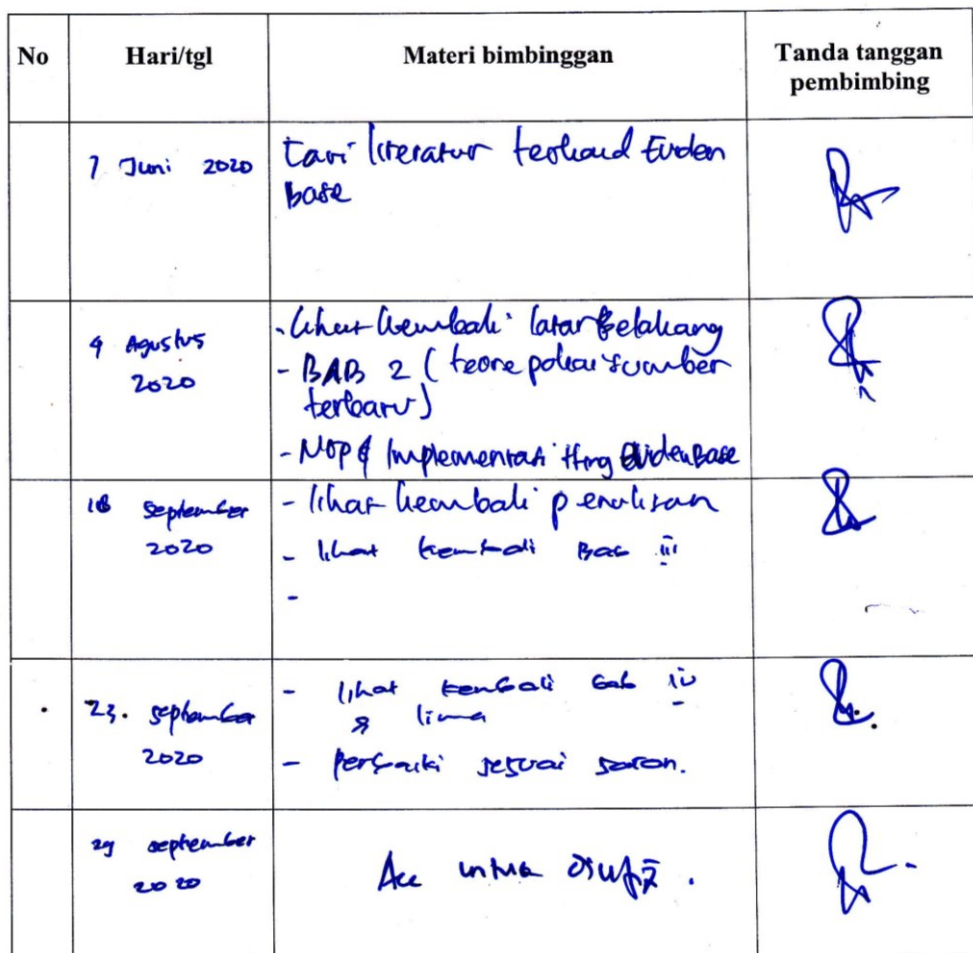 No
Hari/tgl
Materi bimbinggan
Tanda tanggan
pembimbing
7 Juni 2020
Cari literatur
Base
9 Agustus
2020
- lihat kembali latar belakang
- BAB 2 (
sumber
terbaru)
- Implementasi ttng EvidenBase
18 September
2020
- lihat kembali penulisan
- lihat kembali Bab iii
-
23. September
2020
- lihat kembali bab iv
& lima
- perbaiki sesuai saran.
29 september
2020
Acc untuk